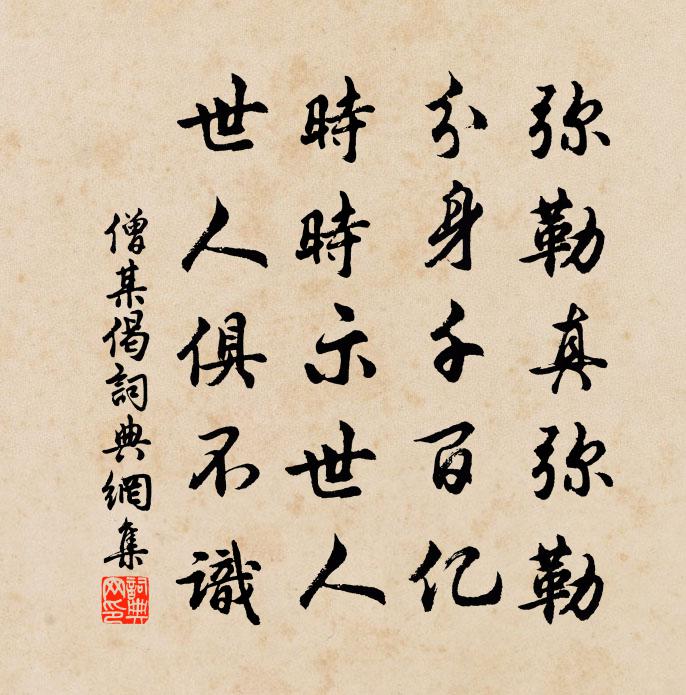 弥勒真弥勒
分身千百亿
時時示世人
世人俱不識
僧某偈詞典網集
詞典网印